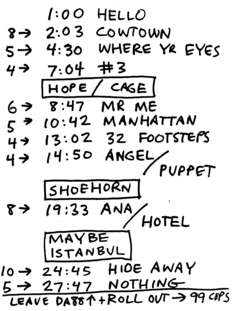 1:00 HELLO
8→ 2:03 COWTOWN
5→ 4:30 WHERE YR EYES
4→ 7:04 #3
HOPE / CAGE
6→ 8:47 MR ME
5→ 10:42 MANHATTAN
4→ 13:02 32 FOOTSTEPS
4→ 14:50 ANGEL/
PUPPET
SHOEHORN
8→ 19:33 ANA/
HOTEL
MAYBE
ISTANBUL
10→ 24:45 HIDE AWAY
5→ 27:47 NOTHING
LEAVE DA88↑+ROLL OUT→99 CUPS